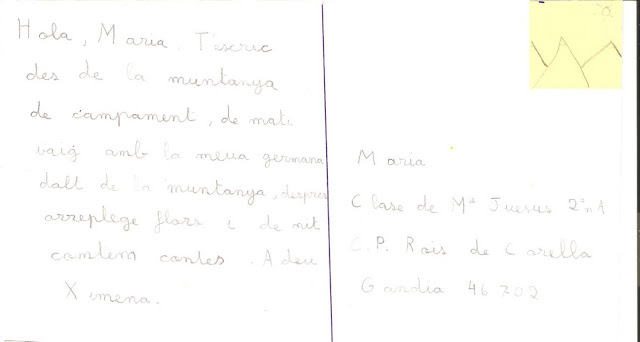 Hola, Maria. T'escric
des de la muntanya
de campament, de mati
vaig amb la meua germana
dalt de la muntanya, despres
arreplege flors i de nit
cantem cantes. A deu
Ximena.
Maria
Clase de Mª Juesus 2ºn A
C.P. Rois de Corella
Gandia 46702